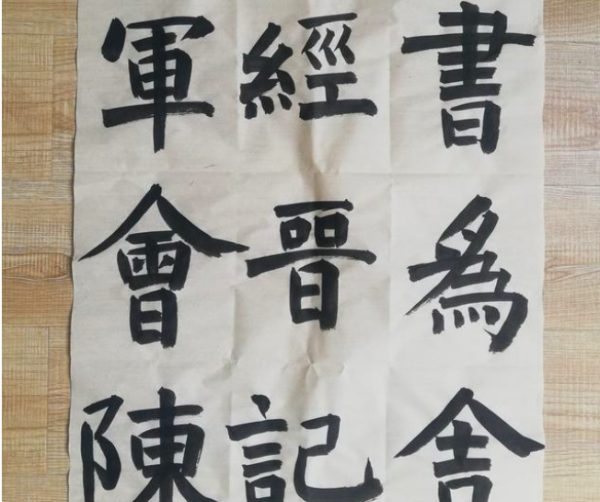 書為舍
經晉記
軍會陳